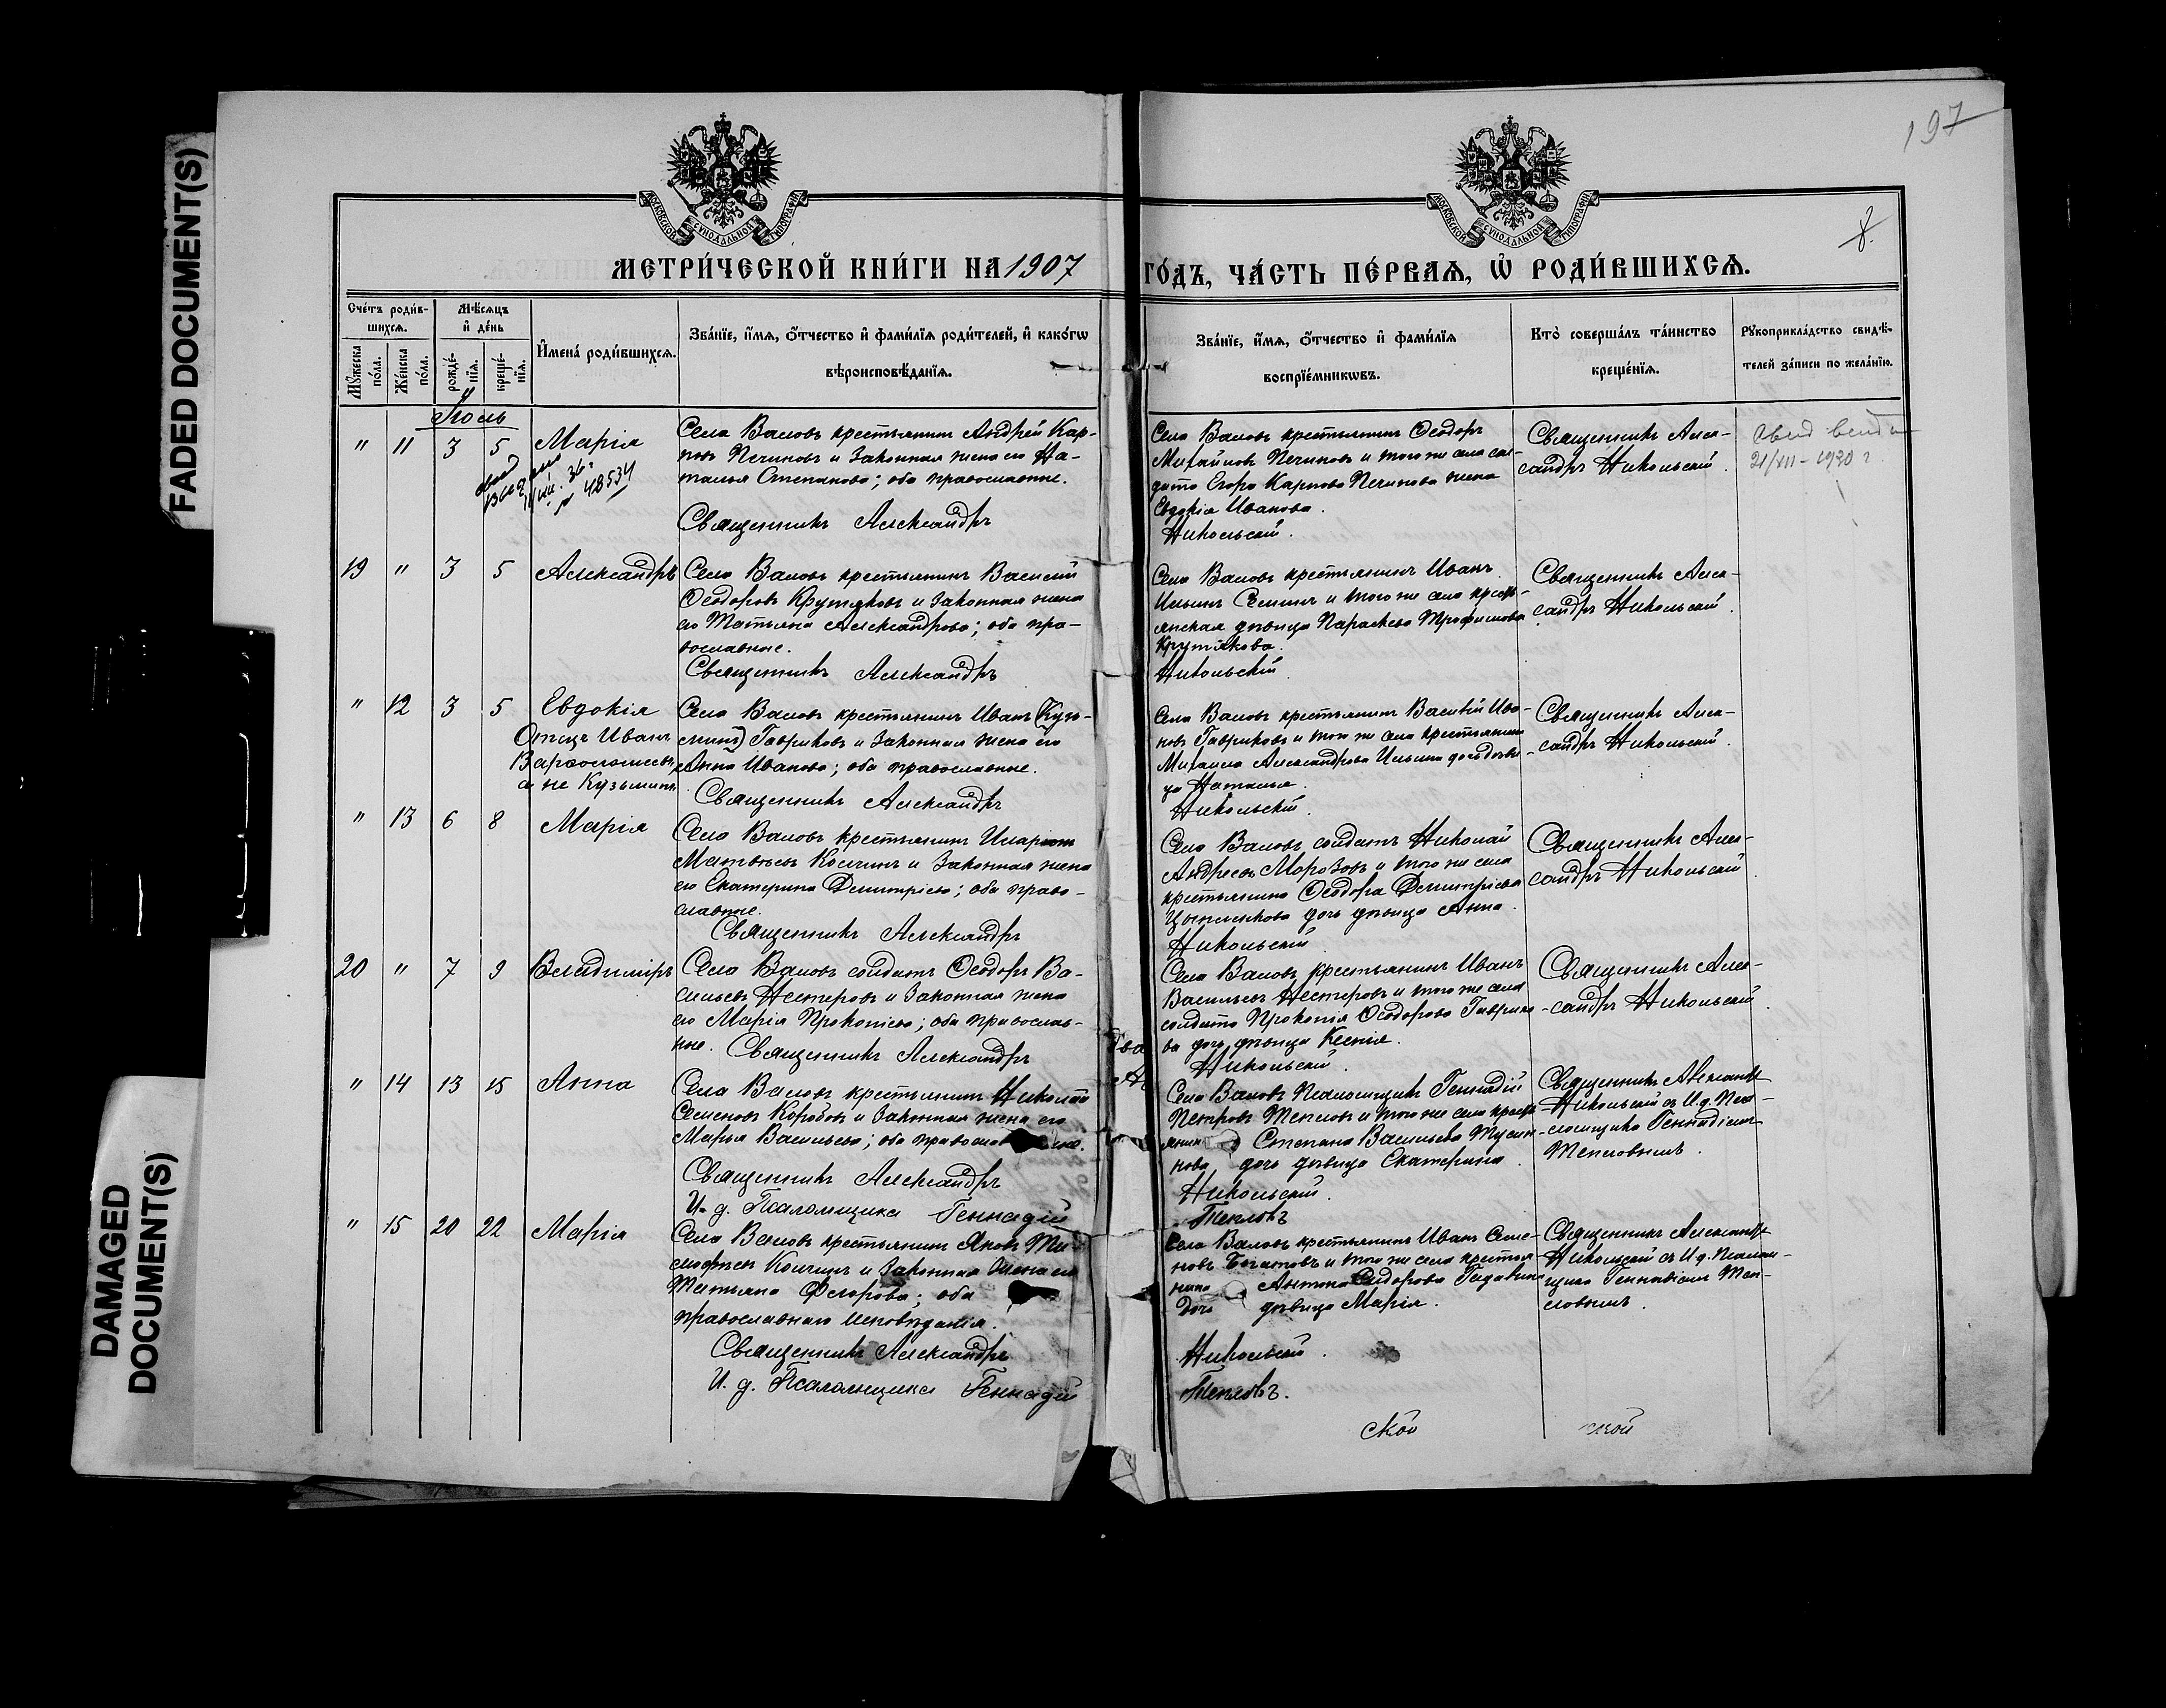 FADED DOCUMENT(S)
DAMAGED
DOCUMENT(S)
197
8.
МОСКОВСКОЙ СѴНОДАЛЬНОЙ ТИПОГРАФІИ
МОСКОВСКОЙ СѴНОДАЛЬНОЙ ТИПОГРАФІИ
МЕТРИ́ЧЕСКОЙ КНИ́ГИ НА 1907 ГО́ДЪ, ЧА́СТЬ ПЕ́РВАѦ, Ѡ҆ РОДИ́ВШИХСѦ.
Сче́тъ роди́в-
шихсѧ.
Мꙋ́жеска
по́ла.
Же́нска
по́ла.
Мѣ́сѧцъ
и҆ де́нь
рожде́-
нїѧ.
креще́-
нїѧ.
И҆мена̀ роди́вшихсѧ.
Зва́нїе, и҆́мѧ, ѻ҆́тчество и҆ фами́лїѧ роди́телей, и҆ како́гѡ
вѣроисповѣ́данїѧ.
Зва́нїе, и҆́мѧ, ѻ҆́тчество и҆ фами́лїѧ
воспрїе́мникѡвъ.
Кто̀ соверша́лъ та́инство
креще́нїѧ.
Рꙋкоприкла́дство свидѣ́-
телей за́писи по жела́нїю.
Іюль
" 11 3 5 Марія
№ 48534
Села Валовъ крестьянинъ Андрей Кар-
повъ Печиновъ и законная жена его На-
талья Степанова; оба православные.
Священникъ Александръ
Села Валовъ крестьянинъ Ѳеодоръ
Михайловъ Печиновъ и того же села сол-
дата Егора Карпова Печинова жена
Евдокія Иванова.
Никольскій.
Священникъ Алек-
сандръ Никольскій.
21/VII-1920 г.
19 " 3 5 Александръ
Села Валовъ крестьянинъ Василій
Ѳеодоровъ Крутяковъ и законная жена
его Татьяна Александрова; оба пра-
вославные.
Священникъ Александръ
Села Валовъ крестьянинъ Иванъ
Ильинъ Семинъ и того же села кресть-
янская дѣвица Параскева Трофимова
Крутякова.
Никольскій
Священникъ Алек-
сандръ Никольскій.
" 12 3 5 Евдокія
Отецъ Иванъ
Варѳоломеевъ,
а не Кузьминъ.
Села Валовъ крестьянинъ Иванъ (Кузь-
минъ) Гавриковъ и законная жена его
Анна Иванова; оба православные.
Священникъ Александръ
Села Валовъ крестьянинъ Василій Ива-
новъ Гавриковъ и того же села крестьянина
Михаила Александрова Ильина дочь дѣви-
ца Наталья.
Никольскій.
Священникъ Алек-
сандръ Никольскій.
" 13 6 8 Марія
Села Валовъ крестьянинъ Иларіонъ
Матвѣевъ Колчинъ и законная жена
его Екатерина Димитріева; оба право-
славные.
Священникъ Александръ
Села Валовъ солдатъ Николай
Андреевъ Морозовъ и того же села
крестьянина Ѳеодора Димитріева
Цыпленкова дочь дѣвица Анна.
Никольскій
Священникъ Алек-
сандръ Никольскій
20 " 7 9 Владиміръ
Села Валовъ солдатъ Ѳеодоръ Ва-
сильевъ Нестеровъ и законная жена
его Марія Прокопіева; оба православ-
ные. Священникъ Александръ
Села Валовъ крестьянинъ Иванъ
Васильевъ Нестеровъ и того же села
солдата Прокопія Ѳеодорова Гаврико-
ва дочь дѣвица Ксенія.
Никольскій.
Священникъ Алек-
-сандръ Никольскій.
" 14 13 15 Анна
Села Валовъ крестьянинъ Николай
Семеновъ Коробовъ и законная жена его
Марья Васильева; оба православные.
Священникъ Александръ
И. д. Псаломщика Геннадій
Села Валовъ Псаломщикъ Геннадій
Петровъ Тепловъ и того же села кресть-
янина Степана Васильева
нова дочь дѣвица Екатерина.
Никольскій.
Тепловъ
Священникъ Александръ
Никольскій съ И. д. Пса-
ломщика Геннадіемъ
Тепловымъ.
" 15 20 22 Марія
Села Валовъ крестьянинъ Яковъ Ти-
моѳеевъ Колчинъ и законная жена его
Татьяна Фегорова; оба
православнаго исповѣданія.
Священникъ Александръ
И. д. Псаломщика Геннадій
Села Валовъ крестьянинъ Иванъ Семе-
новъ Богатовъ и того же села крестья-
нина Антона Сидорова
дочь дѣвица Марія.
Никольскій.
Тепловъ.
Священникъ Александръ
Никольскій съ И. д. Псалом-
щика Геннадіемъ Теп-
ловымъ.
ской
ской